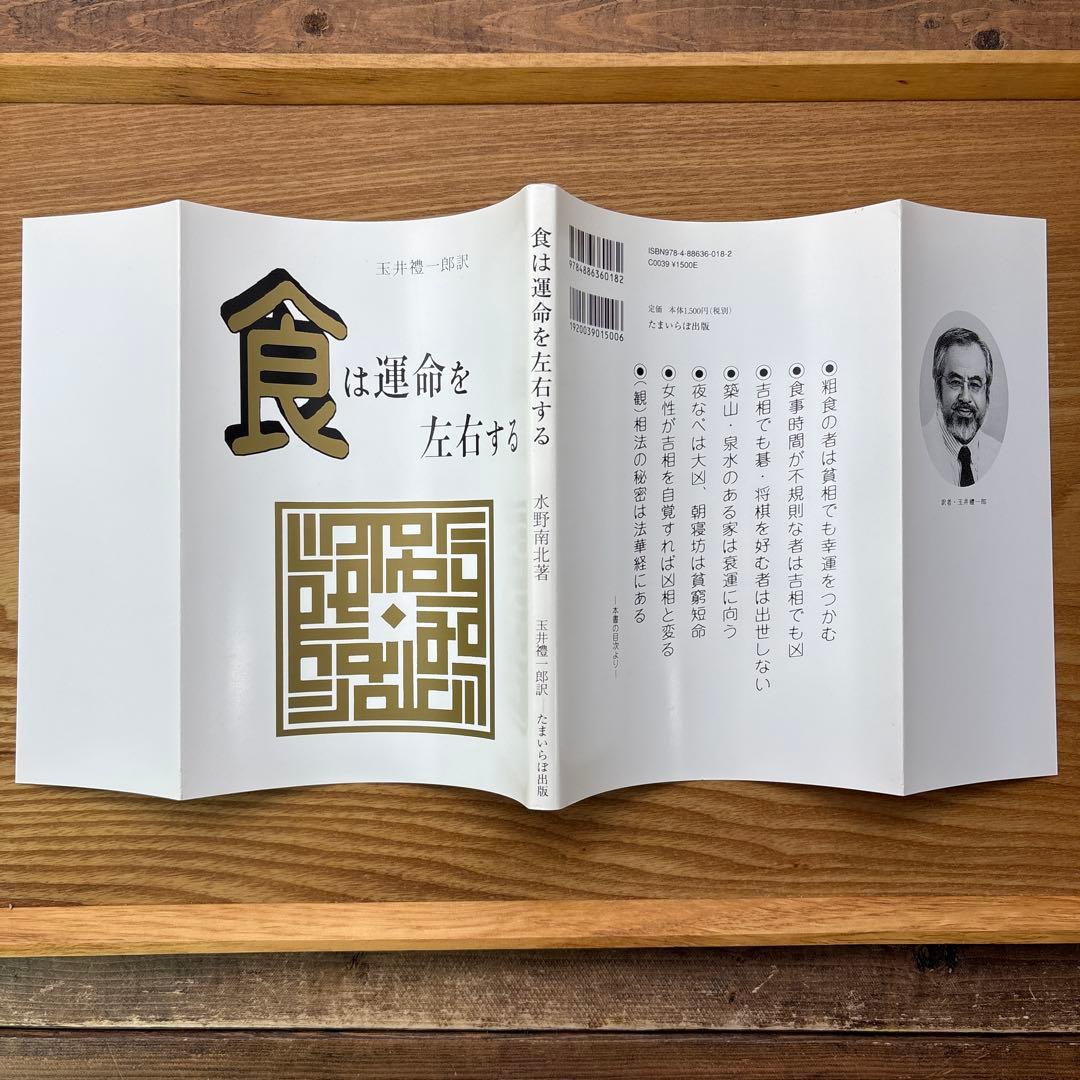 玉井禮一郎訳
食は運命を
左右する
食は運命を左右する
水野南北著
玉井禮一郎訳
たまいらぼ出版
9784886360182
1920039015006
ISBN978-4-88636-018-2
C0039 ¥1500E
定価 本体1,500円(税別)
たまいらぼ出版
●粗食の者は貧相でも幸運をつかむ
●食事時間が不規則な者は吉相でも凶
●吉相でも碁・将棋を好む者は出世しない
●築山・泉水のある家は衰運に向う
●夜なべは大凶、朝寝坊は貧窮短命
●女性が吉相を自覚すれば凶相と変る
●(観)相法の秘密は法華経にある
―本書の目次より―
訳者・玉井禮一郎